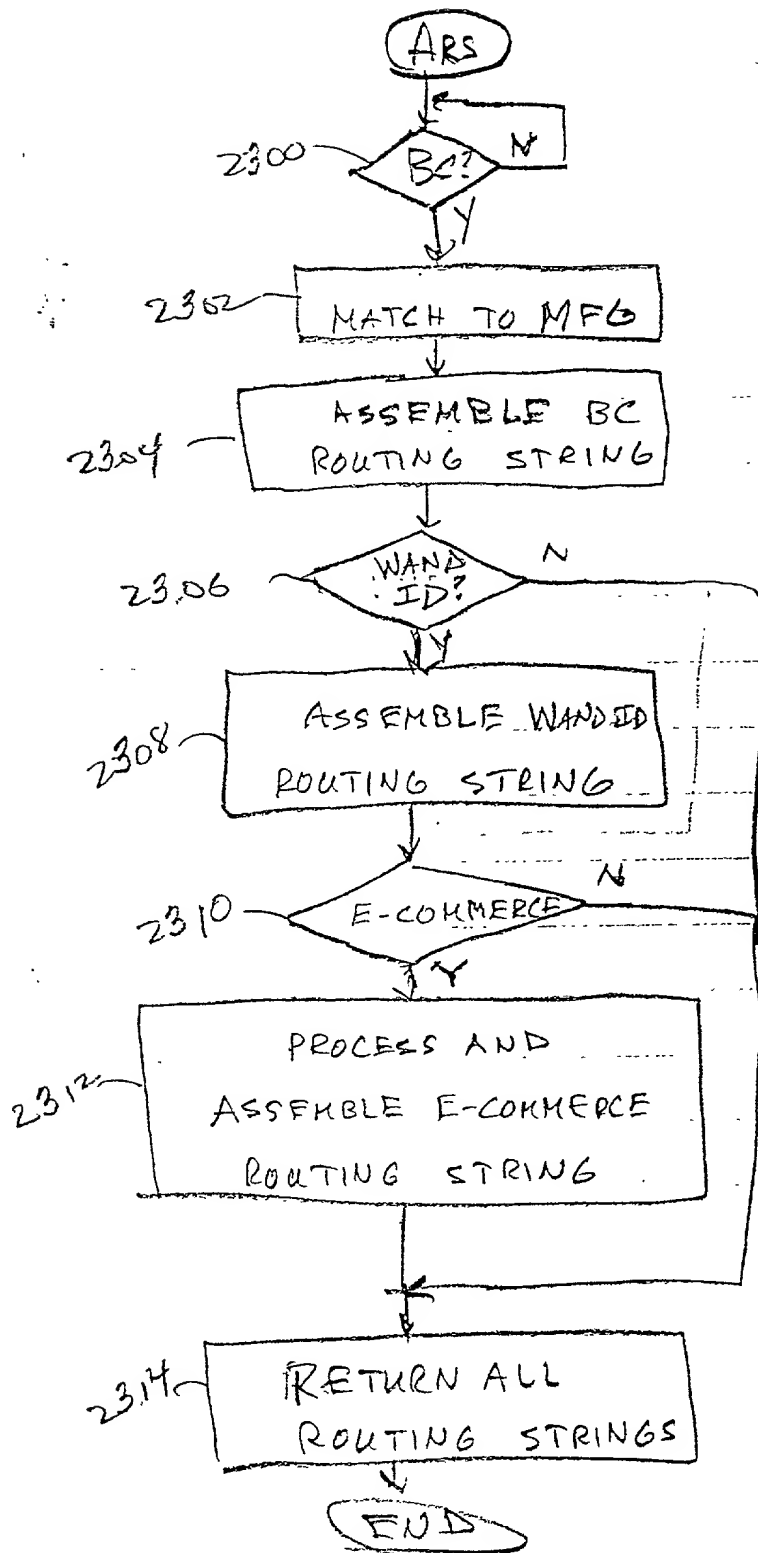 ARS
2300
BC?
N
Y
2302
MATCH TO MFG
ASSEMBLE BC
2304
ROUTING STRING
N
WAND
2306
ID?
Y
ASSEMBLE WAND ID
2308
ROUTING STRING
N
2310
E-COMMERCE
Y
PROCESS AND
2312
ASSEMBLE E-COMMERCE
ROUTING STRING
2314
RETURN ALL
ROUTING STRINGS
END